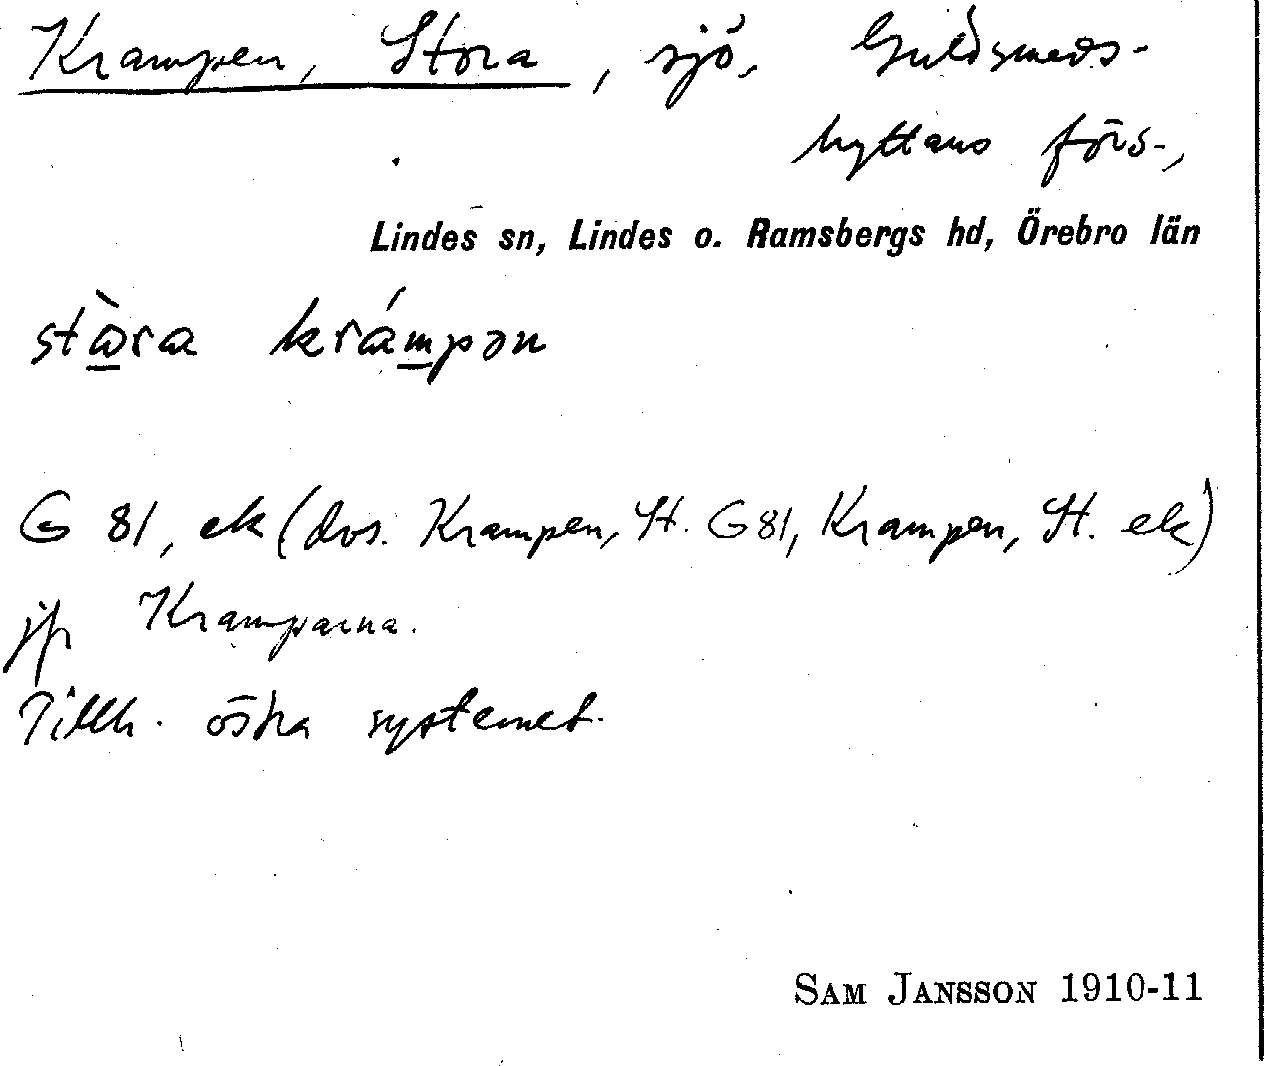 Krampen, Stora, sjö, Guldsmeds-
hyttans förs.,
Lindes sn, Lindes o. Ramsbergs hd, Örebro län
stɷ̀ra krámpən
G 81, ek (dvs. Krampen, St. G 81, Krampen, St. ek)
jfr Kramparna.
Tillh. östra systemet.
SAM JANSSON 1910-11